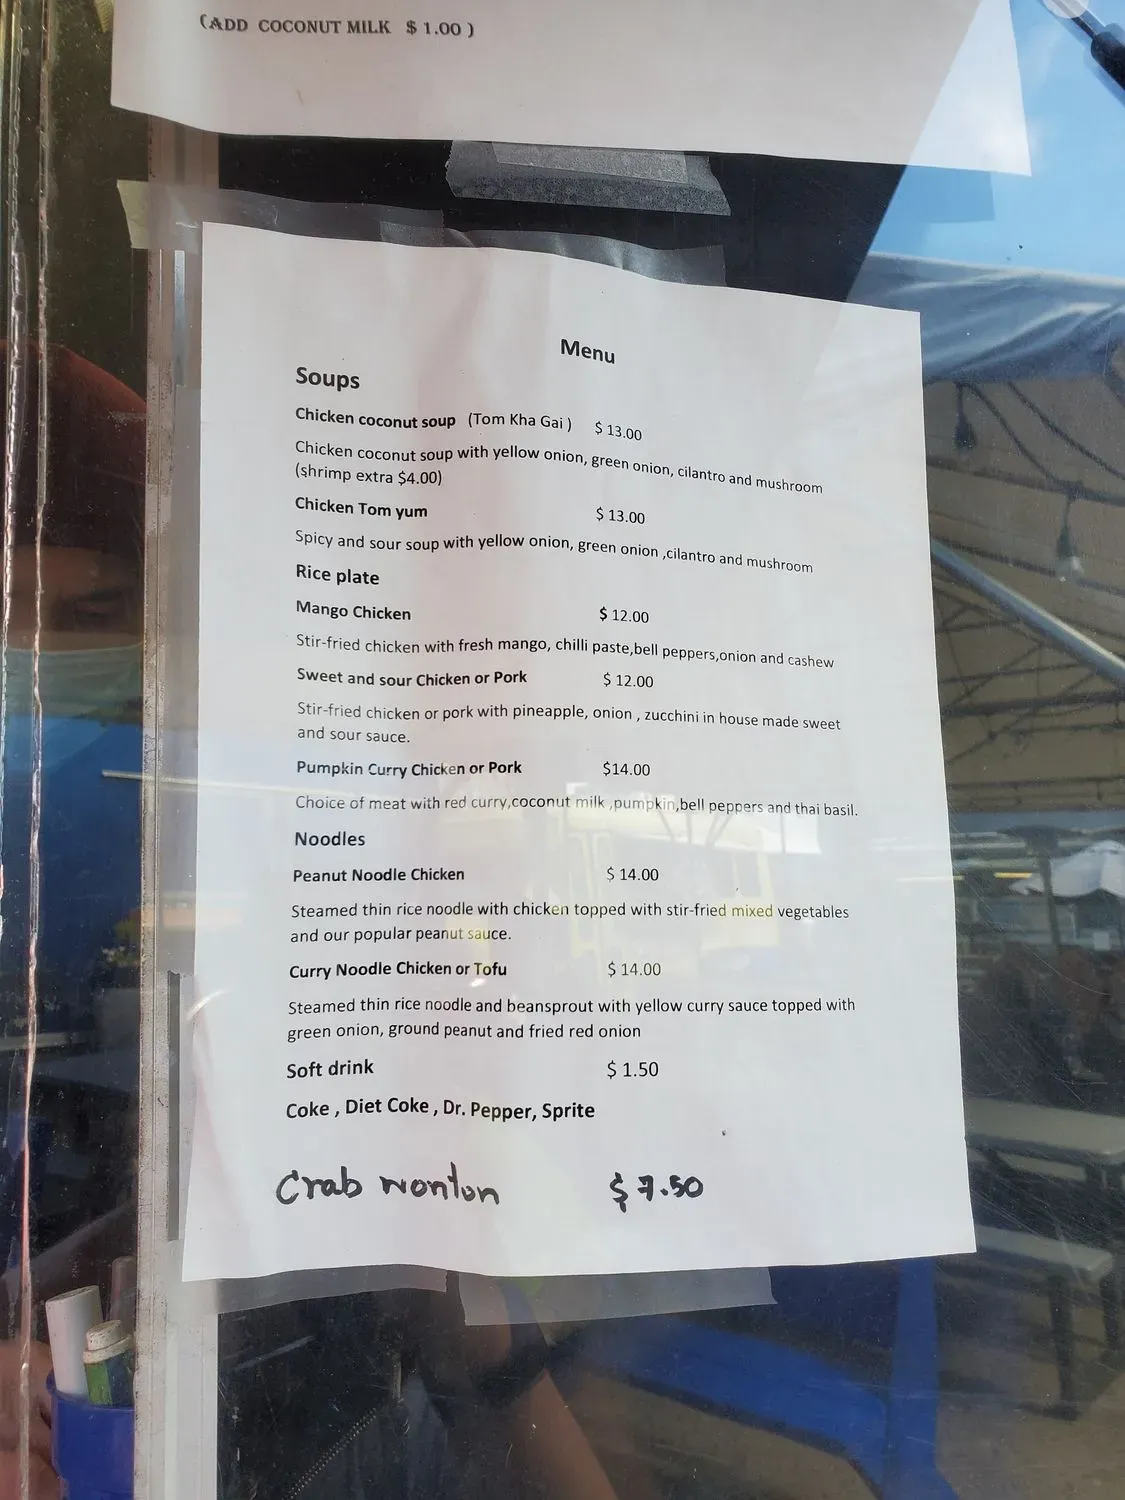 (ADD COCONUT MILK $ 1.00 )
Menu
Soups
Chicken coconut soup (Tom Kha Gai ) $ 13.00
Chicken coconut soup with yellow onion, green onion, cilantro and mushroom
(shrimp extra $4.00)
Chicken Tom yum $ 13.00
Spicy and sour soup with yellow onion, green onion ,cilantro and mushroom
Rice plate
Mango Chicken $ 12.00
Stir-fried chicken with fresh mango, chilli paste,bell peppers,onion and cashew
Sweet and sour Chicken or Pork $ 12.00
Stir-fried chicken or pork with pineapple, onion , zucchini in house made sweet
and sour sauce.
Pumpkin Curry Chicken or Pork $14.00
Choice of meat with red curry,coconut milk ,pumpkin,bell peppers and thai basil.
Noodles
Peanut Noodle Chicken $ 14.00
Steamed thin rice noodle with chicken topped with stir-fried mixed vegetables
and our popular peanut sauce.
Curry Noodle Chicken or Tofu $ 14.00
Steamed thin rice noodle and beansprout with yellow curry sauce topped with
green onion, ground peanut and fried red onion
Soft drink $ 1.50
Coke , Diet Coke , Dr. Pepper, Sprite
Crab wonton $ 7.50